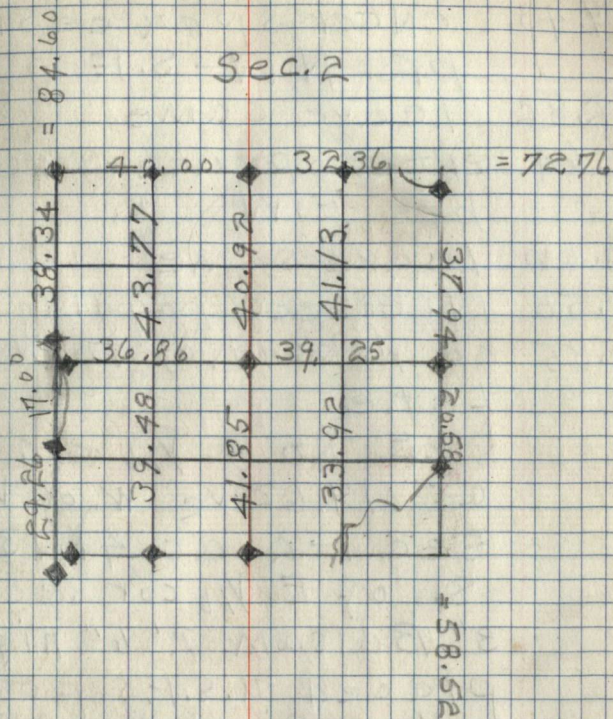 Sec. 2
= 84.60
40.00 32.36 = 72.76
38.34
43.77
40.92
41.13
37.94
36.86 39.25
17.00
29.26
39.48
41.85
33.92
20.58
= 58.52